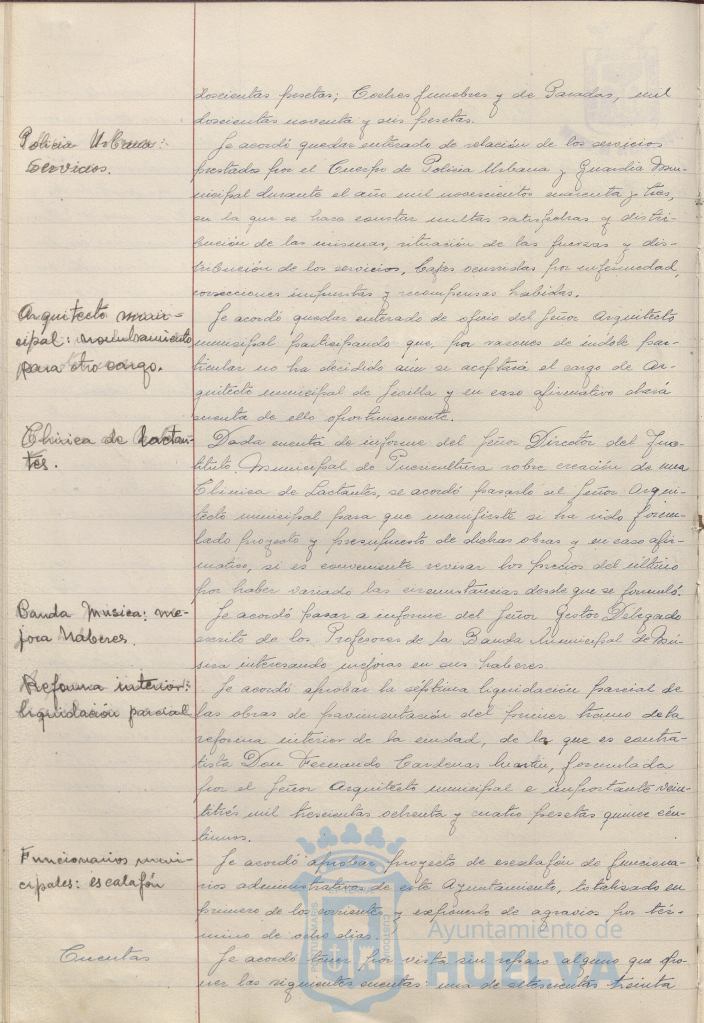 doscientas pesetas; Coches fúnebres y de Paradas, mil
doscientas noventa y seis pesetas.
Policía Urbana:
Servicios.
Se acordó quedar enterado de relación de los servicios
prestados por el Cuerpo de Policía Urbana y Guardia Mu-
nicipal durante el año mil novecientos cuarenta y tres,
en la que se hace constar multas satisfechas y distri-
bución de las mismas, situación de las fuerzas y dis-
tribución de los servicios, bajas ocurridas por enfermedad,
correcciones impuestas y recompensas habidas.
Arquitecto muni-
cipal: nombramiento
para otro cargo.
Se acordó quedar enterado de oficio del Señor Arquitecto
municipal participando que, por razones de índole par-
ticular no ha decidido aún si aceptará el cargo de Ar-
quitecto municipal de Sevilla y en caso afirmativo dará
cuenta de ello oportunamente.
Clínica de Lactan-
tes.
Dada cuenta de informe del Señor Director del Ins-
tituto Municipal de Puericultura sobre creación de una
Clínica de Lactantes, se acordó pasarlo al Señor Arqui-
tecto municipal para que manifieste si ha sido formu-
lado proyecto y presupuesto de dichas obras y en caso afir-
mativo, si es conveniente revisar los precios del último
por haber variado las circunstancias desde que se formuló.
Banda Música: me-
jora haberes.
Se acordó pasar a informe del Señor Gestor Delegado
escrito de los Profesores de la Banda Municipal de Mú-
sica interesando mejoras en sus haberes.
Reforma interior:
liquidación parcial
Se acordó aprobar la séptima liquidación parcial de
las obras de pavimentación del primer tramo de la
reforma interior de la ciudad, de la que es contra-
tista Don Fernando Cardenas Martín, formulada
por el Señor Arquitecto municipal e importante vein-
titrés mil trescientas ochenta y cuatro pesetas quince cén-
timos.
Funcionarios muni-
cipales: escalafón
Se acordó aprobar proyecto de escalafón de funciona-
rios administrativos de este Ayuntamiento, totalizado en
primero de los corrientes y exponerlo de agravios por tér-
mino de ocho días.
Cuentas
Se acordó tener por vista sin reparo alguno que opo-
ner las siguientes cuentas: una de setecientas treinta
Ayuntamiento de
HUELVA